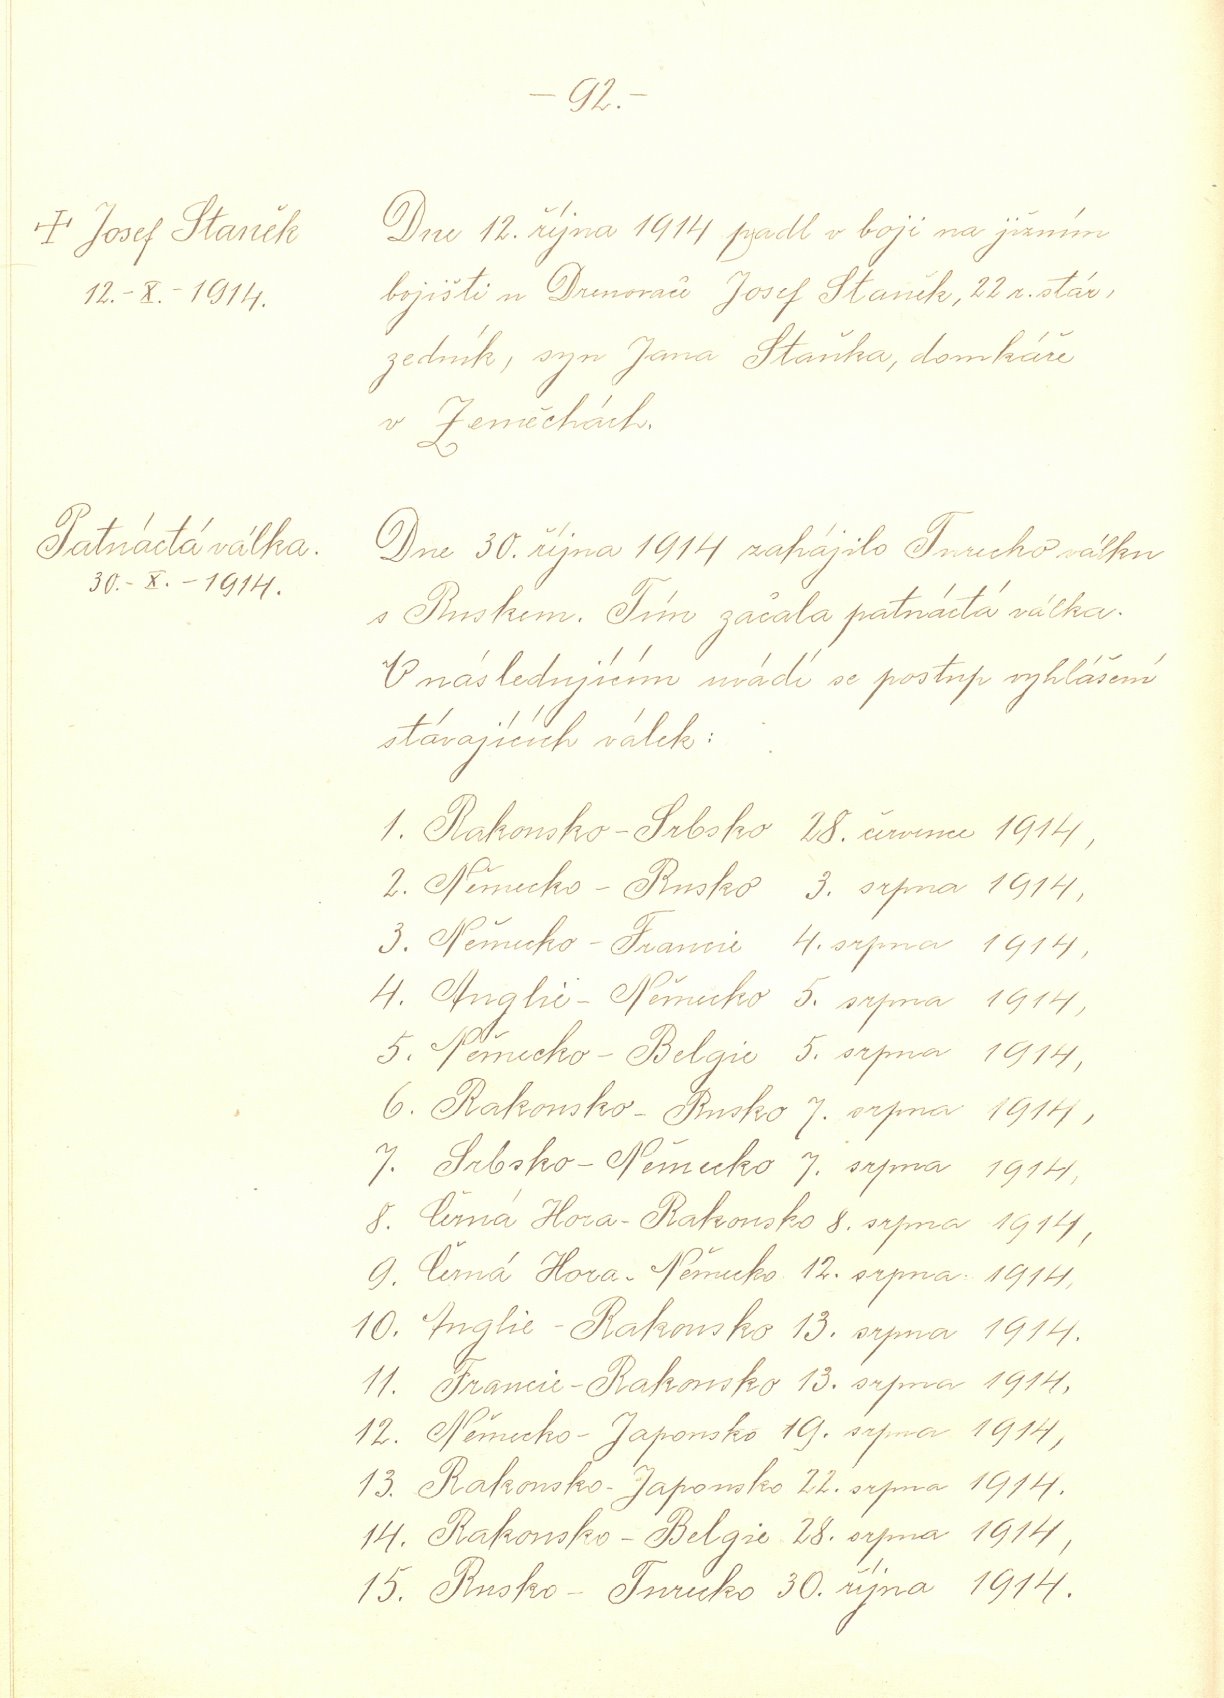 - 92. -
+ Josef Staněk
12. - X. - 1914.
Dne 12. října 1914 padl v boji na jižním
bojišti u Drenovači Josef Staněk, 22 r. stár,
zedník, syn Jana Staňka, domkáře
v Zeměchách.
Patnáctá válka.
30. - X. - 1914.
Dne 30. října 1914 zahájilo Turecko válku
s Ruskem. Tím začala patnáctá válka.
V následujícím uvádí se postup vyhlášení
stávajících válek:
1. Rakousko - Srbsko 28. července 1914,
2. Německo - Rusko 3. srpna 1914,
3. Německo - Francie 4. srpna 1914,
4. Anglie - Německo 5. srpna 1914,
5. Německo - Belgie 5. srpna 1914,
6. Rakousko - Rusko 7. srpna 1914,
7. Srbsko - Německo 7. srpna 1914,
8. Černá Hora - Rakousko 8. srpna 1914,
9. Černá Hora - Německo 12. srpna 1914,
10. Anglie - Rakousko 13. srpna 1914.
11. Francie - Rakousko 13. srpna 1914,
12. Německo - Japonsko 19. srpna 1914,
13. Rakousko - Japonsko 22. srpna 1914.
14. Rakousko - Belgie 28. srpna 1914,
15. Rusko - Turecko 30. října 1914.